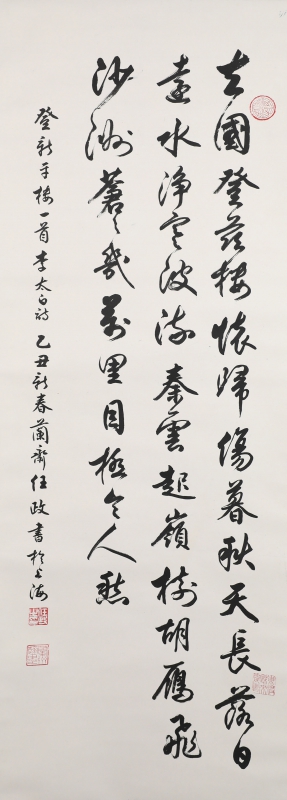 去國登茲樓懷歸傷暮秋天長落日
遠水淨寒波流秦雲起嶺樹胡雁飛
沙洲蒼蒼幾萬里目極令人愁
登新平樓一首李太白詩乙丑新春蘭齋任政書於上海